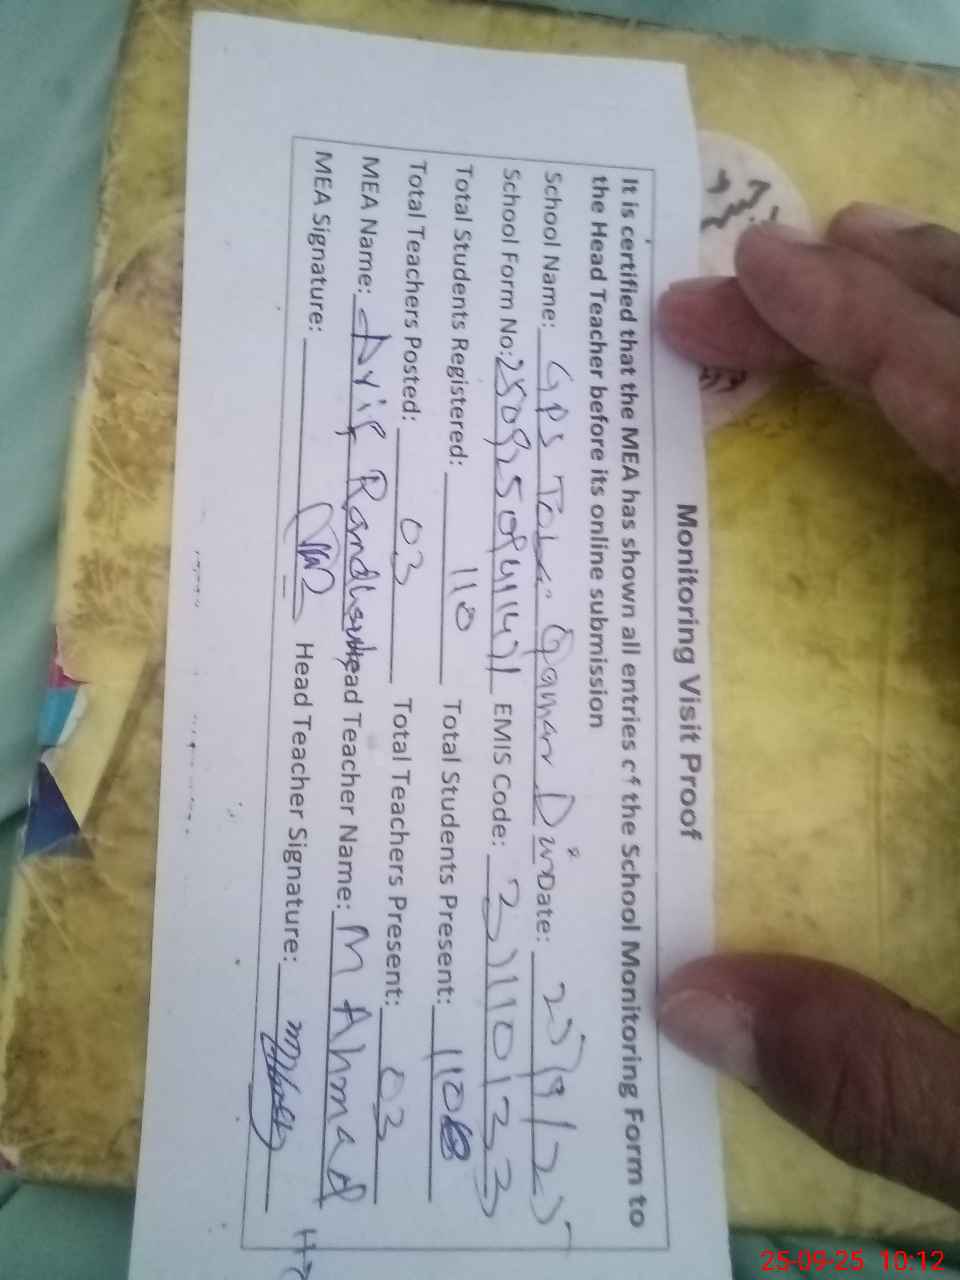 Monitoring Visit Proof
It is certified that the MEA has shown all entries of the School Monitoring Form to
the Head Teacher before its online submission
School Name: GPS Toba Qamar Din Date: 25/9/25
School Form No: EMIS Code:
Total Students Registered: 110 Total Students Present:
Total Teachers Posted: 03 Total Teachers Present: 03
MEA Name: Arif Randhawa Head Teacher Name: M Ahmad
MEA Signature: Head Teacher Signature:
25-09-25 10:12